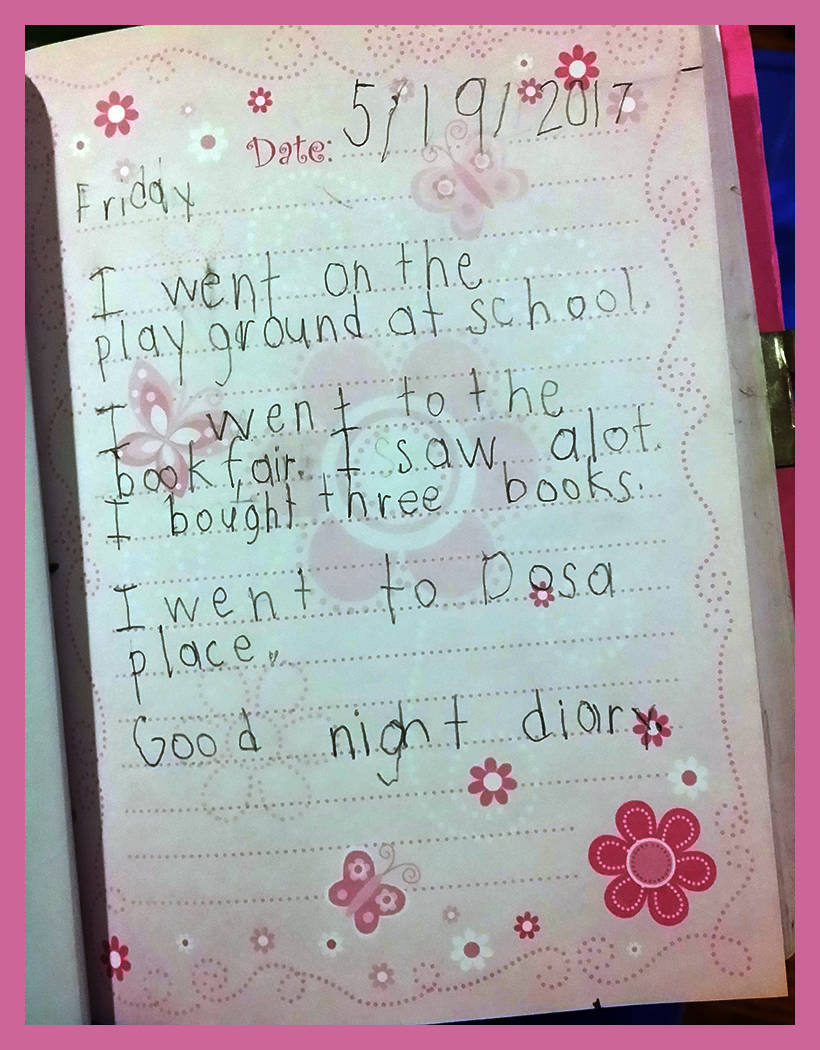 Date: 5/19/2017
Friday
I went on the
play ground at school.
I went to the
book fair. I saw alot.
I bought three books.
I went to Dosa
place.
Good night diary.